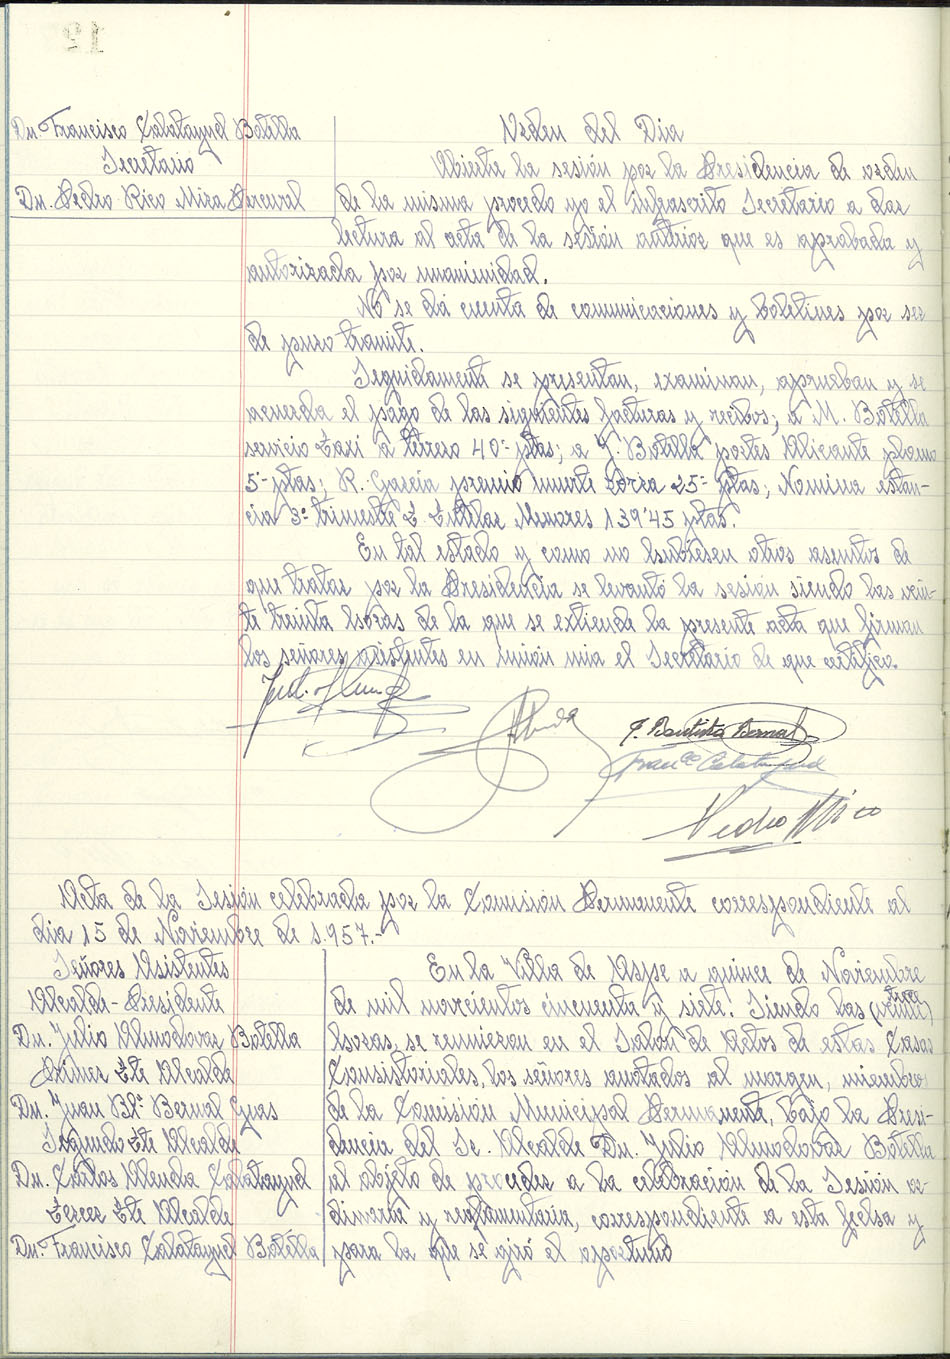 Dn. Francisco Calatayud Botella
Secretario
Dn. Pedro Rico Mira Perceval
Orden del Dia
Abierta la sesión por la Presidencia de orden
de la misma procedo yo el infrascrito Secretario a dar
lectura al acta de la sesión antrior que es aprobada y
autorizada por unanimidad.
No se dá cuenta de comunicaciones y boletines por ser
de puro tramite.
Seguidamente se presentan, examinan, aprueban y se
acuerda el pago de las siguientes facturas y recibos; a M. Botella
servicio taxi a terreo 40- ptas; a J. Botella portes Alicante plomo
5- ptas; R. García premio muerte zorra 25- ptas; Nomina estan-
cia 3º trimestre T. Tutelar Menores 139'45 ptas.
En tal estado y como no hubiesen otros asuntos de
que tratar por la Presidencia se levantó la sesión siendo las vein-
te treinta horas de la que se extiende la presente acta que firman
los señores asistentes en unión mia el Secretario de que certifico.
J. Bautista Bernal
Franco Calatayud
Pedro Rico
Acta de la Sesión celebrada por la Comisión Permanente correspondiente al
dia 15 de Noviembre de 1.957.-
Señores Asistentes
Alcalde-Presidente
Dn. Julio Almodovar Botella
Primer Tte Alcalde
Dn. Juan Bta Bernal Cuas
Segundo Tte Alcalde
Dn. Carlos Alenda Calatayud
Tercer Tte Alcalde
Dn. Francisco Calatayud Botella
En la Villa de Aspe a quince de Noviembre
de mil novecientos cincuenta y siete. Siendo las (veinte)
horas, se reunieron en el Salon de Actos de estas Casas
Consistoriales, los señores anotados al margen, miembros
de la Comisión Municipal Permanente, bajo la Presi-
dencia del Sr. Alcalde Dn. Julio Almodovar Botella
al objeto de proceder a la celebración de la Sesión or-
dinaria y reglamentaria, correspondiente a esta fecha y
para la que se giró el oportuno